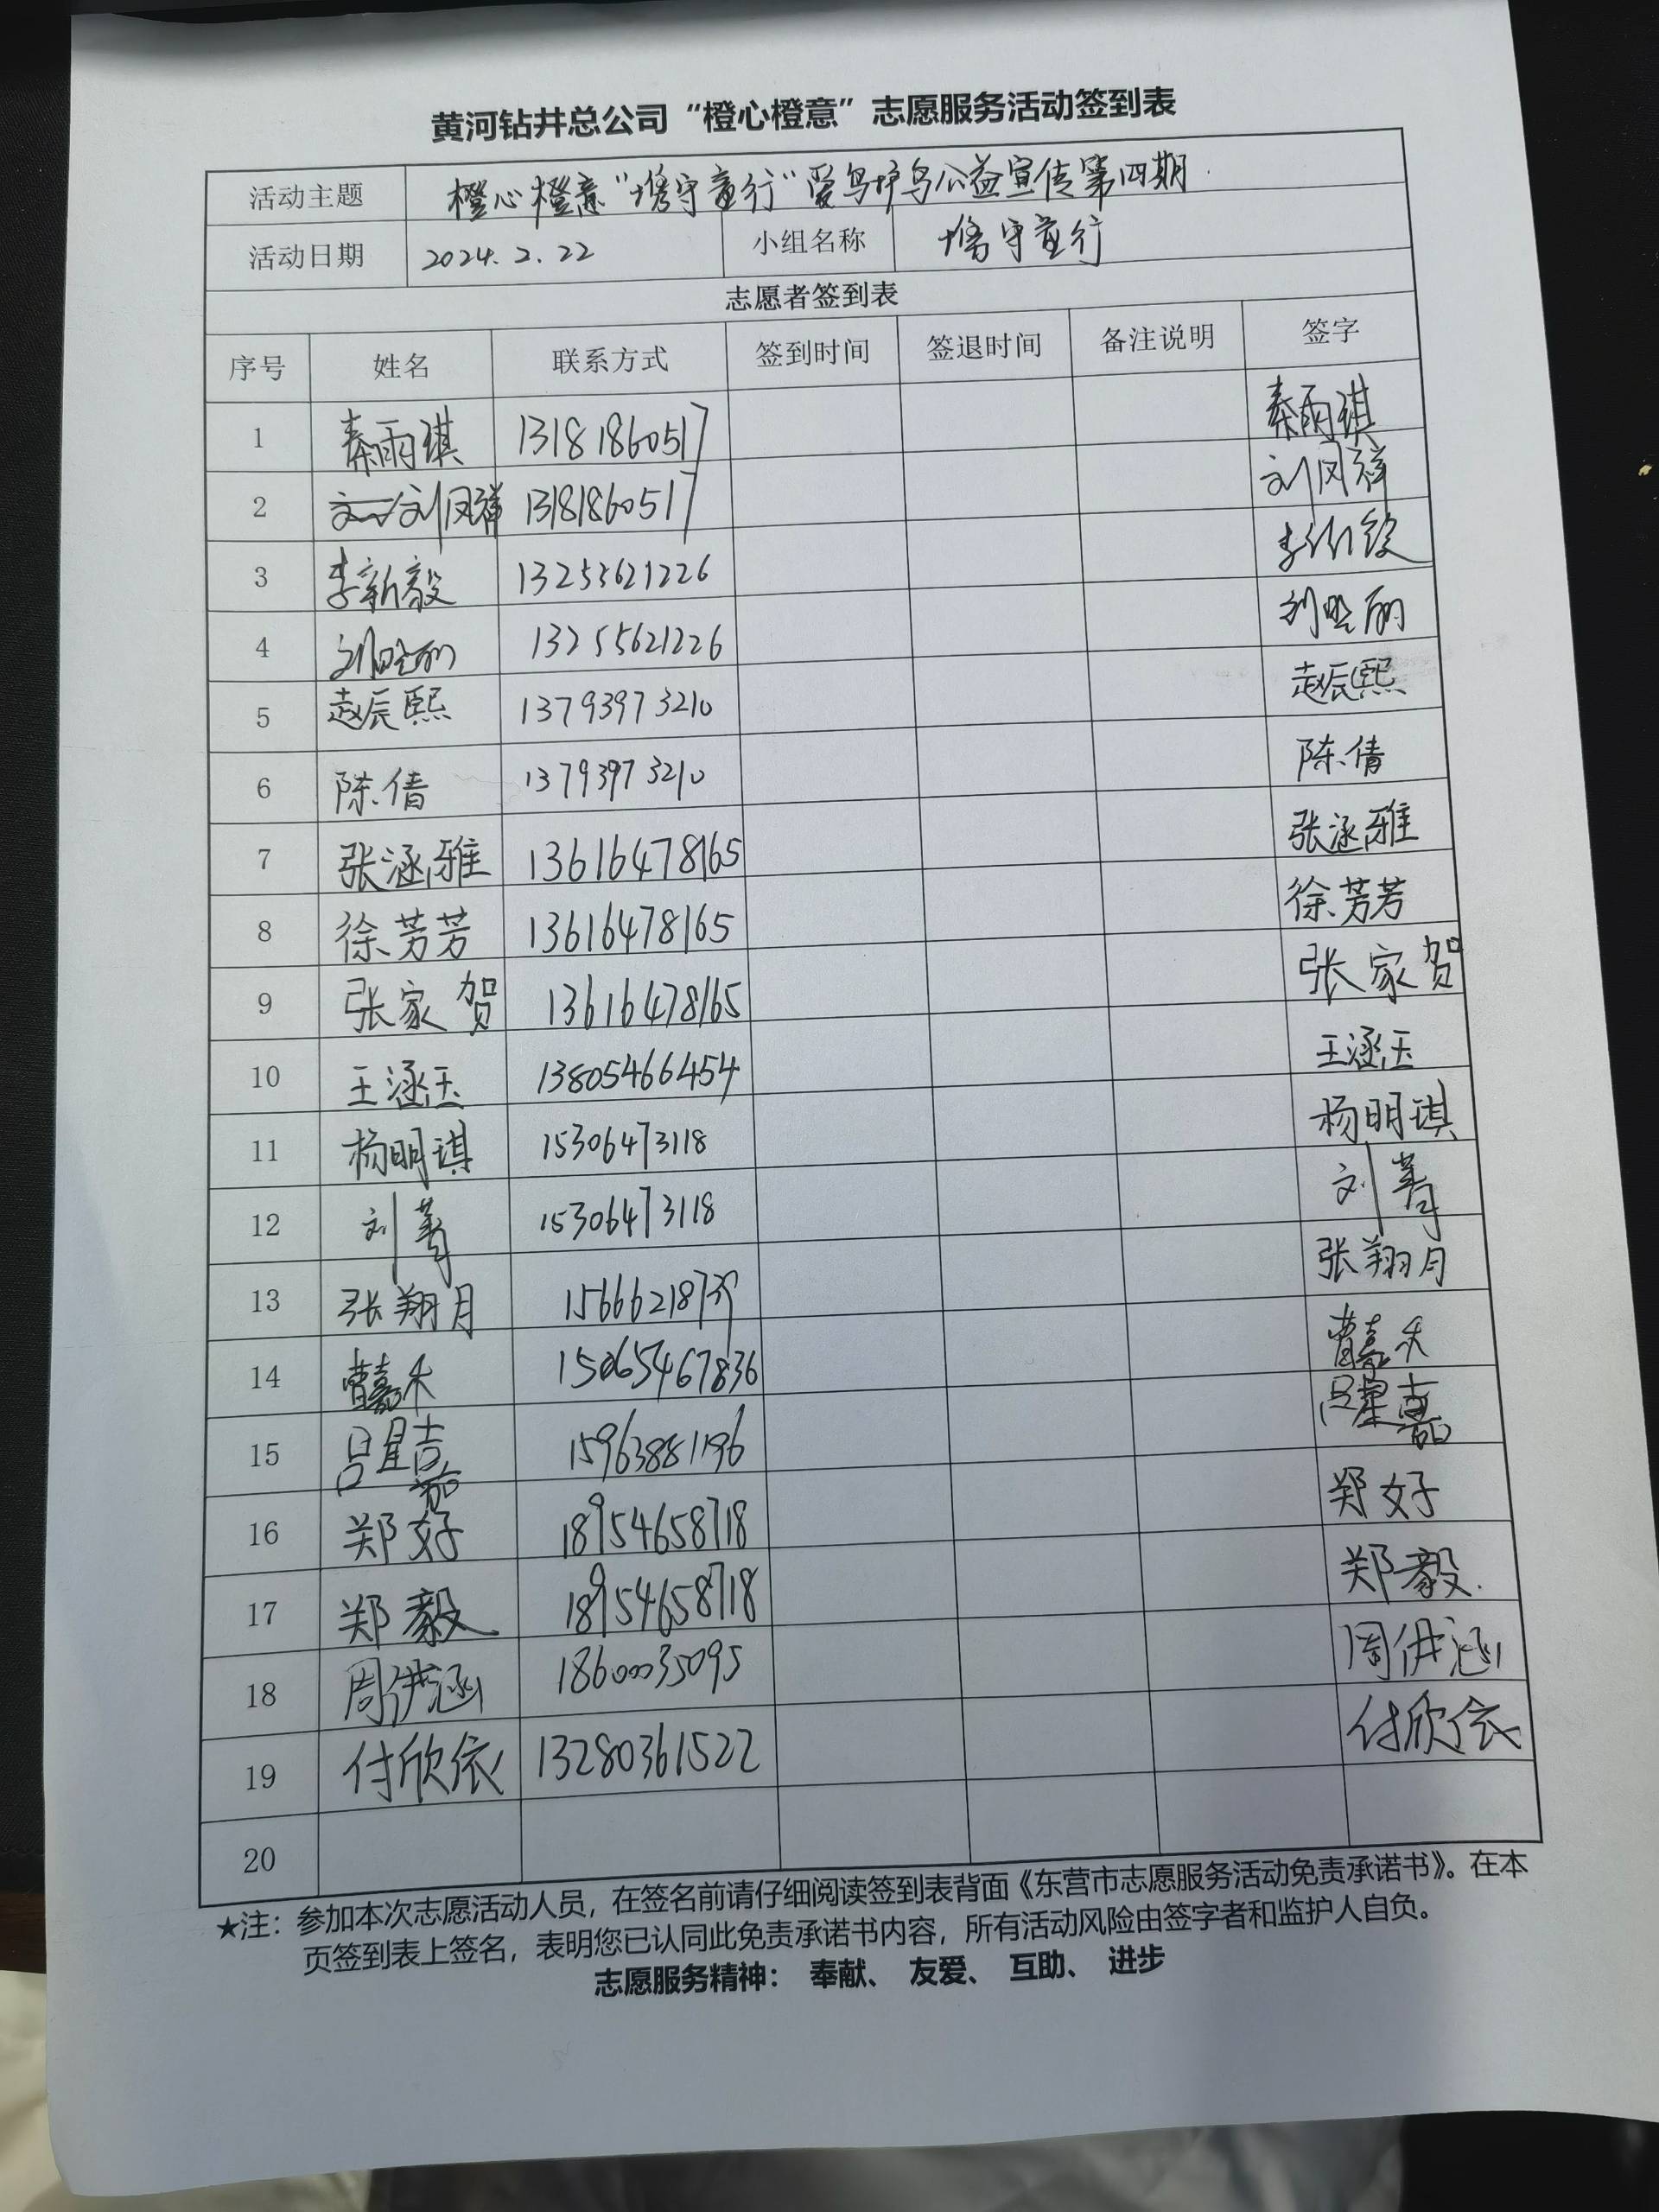 黄河钻井总公司“橙心橙意”志愿服务活动签到表
活动主题 橙心橙意“鸧守童行”爱鸟护鸟公益宣传第四期
活动日期 2024.2.22 小组名称 守童行
志愿者签到表
序号 姓名 联系方式 签到时间 签退时间 备注说明 签字
1 秦雨琪 13181860517 秦雨琪
2 刘凤祥 13181860517 刘凤祥
3 李新毅 13255621226
4 13255621226
5 赵辰熙 13793973210 赵辰熙
6 陈倩 13793973210 陈倩
7 张涵雅 13616478165 张涵雅
8 徐芳芳 13616478165 徐芳芳
9 张家贺 13616478165 张家贺
10 王涵玉 13805466454 王涵玉
11 杨明琪 15306473118 杨明琪
12 刘菁 15306473118 刘菁
13 张翔月 15666218739 张翔月
14 曹嘉禾 15065467836 曹嘉禾
15 吕星嘉 15963881196 吕星嘉
16 郑好 18954658718 郑好
17 郑毅 18954658718 郑毅
18 周伊涵 18600035095 周伊涵
19 付欣依 13280361522 付欣依
20
★注：参加本次志愿活动人员，在签名前请仔细阅读签到表背面《东营市志愿服务活动免责承诺书》。在本
页签到表上签名，表明您已认同此免责承诺书内容，所有活动风险由签字者和监护人自负。
志愿服务精神：奉献、友爱、互助、进步